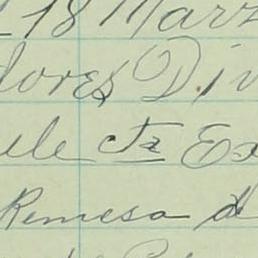 18 Marz
dores Div
ele cta Ex
Remesa de